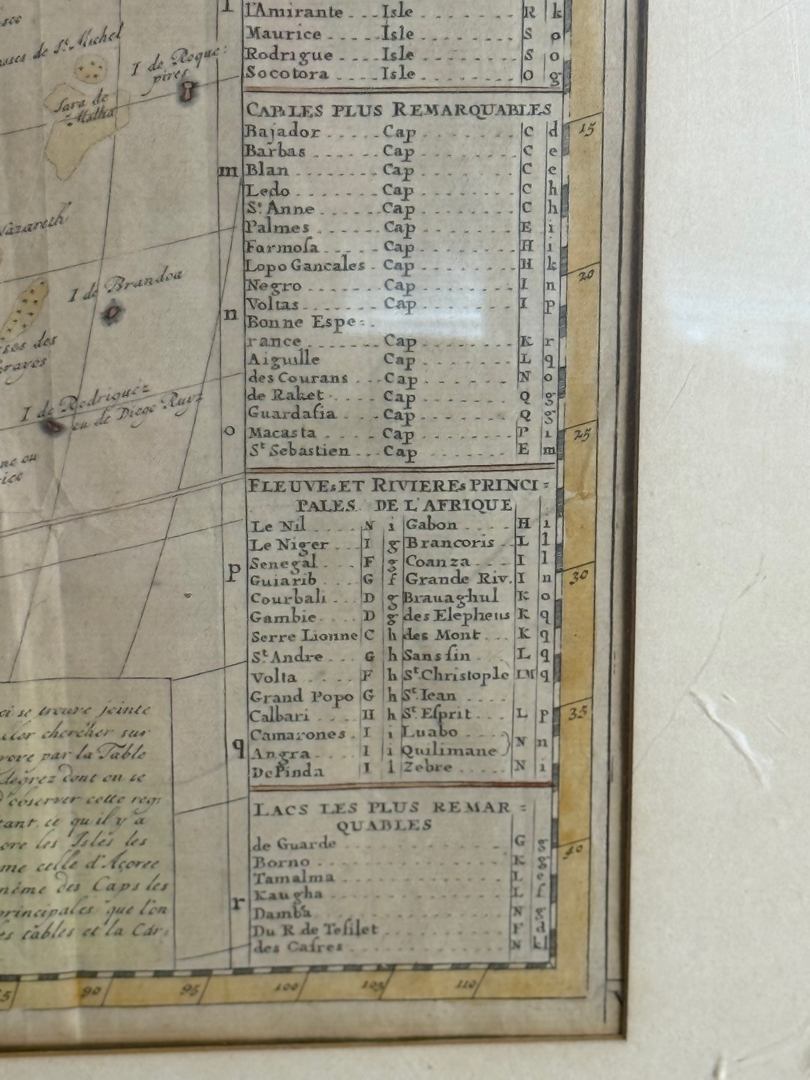 I de Roque
pires
Nazareth
I de Brandoa
I de Rodriguez
ou de Diego Ruyz
l'Amirante Isle R k
Maurice Isle S p
Rodrigue Isle S o
Socotora Isle O g
CAP.LES PLUS REMARQUABLES
Bajador Cap C d
Barbas Cap C e
Blan Cap C e
Ledo Cap C h
St. Anne Cap C h
Palmes Cap E i
Formoſa Cap H i
Lopo Gancales Cap H k
Negro Cap I n
Voltas Cap I p
Bonne Espe=
rance Cap K r
Aiguille Cap L q
des Courans Cap N o
de Raket Cap Q g
Guardaſia Cap Q g
Macasta Cap P i
St Sebastien Cap E m
FLEUVEs ET RIVIEREs PRINCI=
PALES DE L'AFRIQUE
Le Nil N i Gabon H i
Le Niger I g Brancoris L l
Senegal F g Coanza I l
Guiarib G f Grande Riv. I n
Courbali D g Brauaghul K o
Gambie D g des Elepheus K q
Serre Lionne C h des Mont K q
St Andre G h Sans ſin L q
Volta F h St Christople LM q
Grand Popo G h St Iean
Calbari H h St Eſprit L p
Camarones I i Luabo
Angra I i Quilimane N n
De Pinda I l Zebre N i
LACS LES PLUS REMAR=
QUABLES
de Guarde G g
Borno K g
Tamalma L e
Kaugha L f
Damba N g
Du R de Teſilet F d
des Cafres N kl
m
n
o
p
q
r
15
20
25
30
35
40
90
95
100
105
110
ci se trouve jointe
rore par la Table
degrez dont on se
d'observer cette reg:
tant ce qu'il y a
ore les Isles les
me celle d'Açores
même des Caps les
principales que l'on
es tables et la Car: